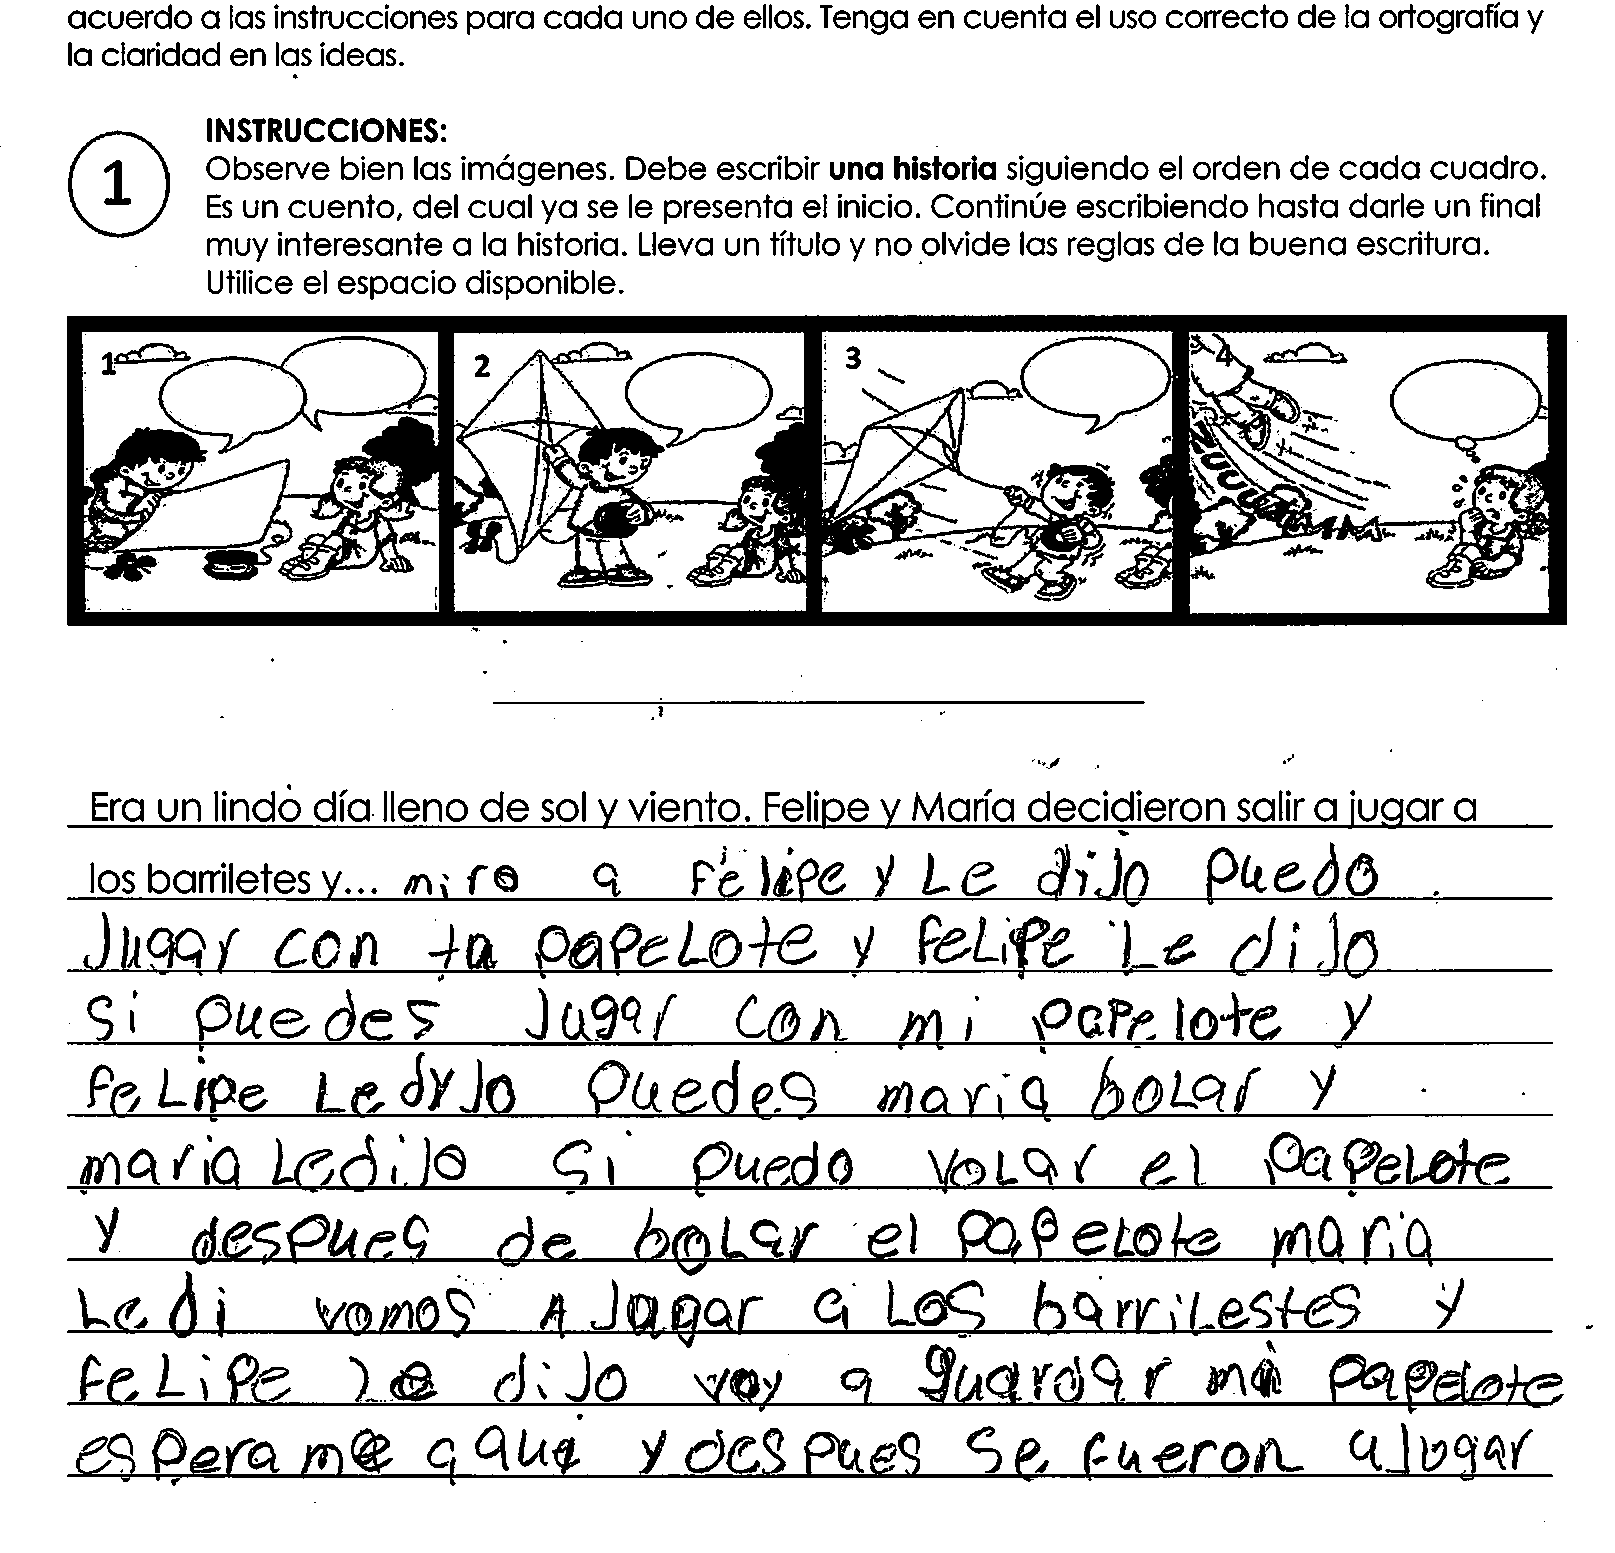 acuerdo a las instrucciones para cada uno de ellos. Tenga en cuenta el uso correcto de la ortografía y
la claridad en las ideas.
INSTRUCCIONES:
1
Observe bien las imágenes. Debe escribir una historia siguiendo el orden de cada cuadro.
Es un cuento, del cual ya se le presenta el inicio. Continúe escribiendo hasta darle un final
muy interesante a la historia. Lleva un título y no olvide las reglas de la buena escritura.
Utilice el espacio disponible.
1 2 3 4
ZUUUUMMM
Era un lindo día lleno de sol y viento. Felipe y María decidieron salir a jugar a
los barriletes y... miro a Felipe y Le dijo Puedo
Jugar con tu papeLote y feLipe Le dijo
Si puedes Jugar con mi papelote y
feLipe Le dyJo Puedes maria boLar y
maria Ledijo Si puedo voLar el papeLote
y despues de boLar el papeLote maria
Le di vomos A Jugar a Los barriLestes y
feLipe Le dijo voy a guardar mi papelote
espera me aqui y despues se fueron aJugar